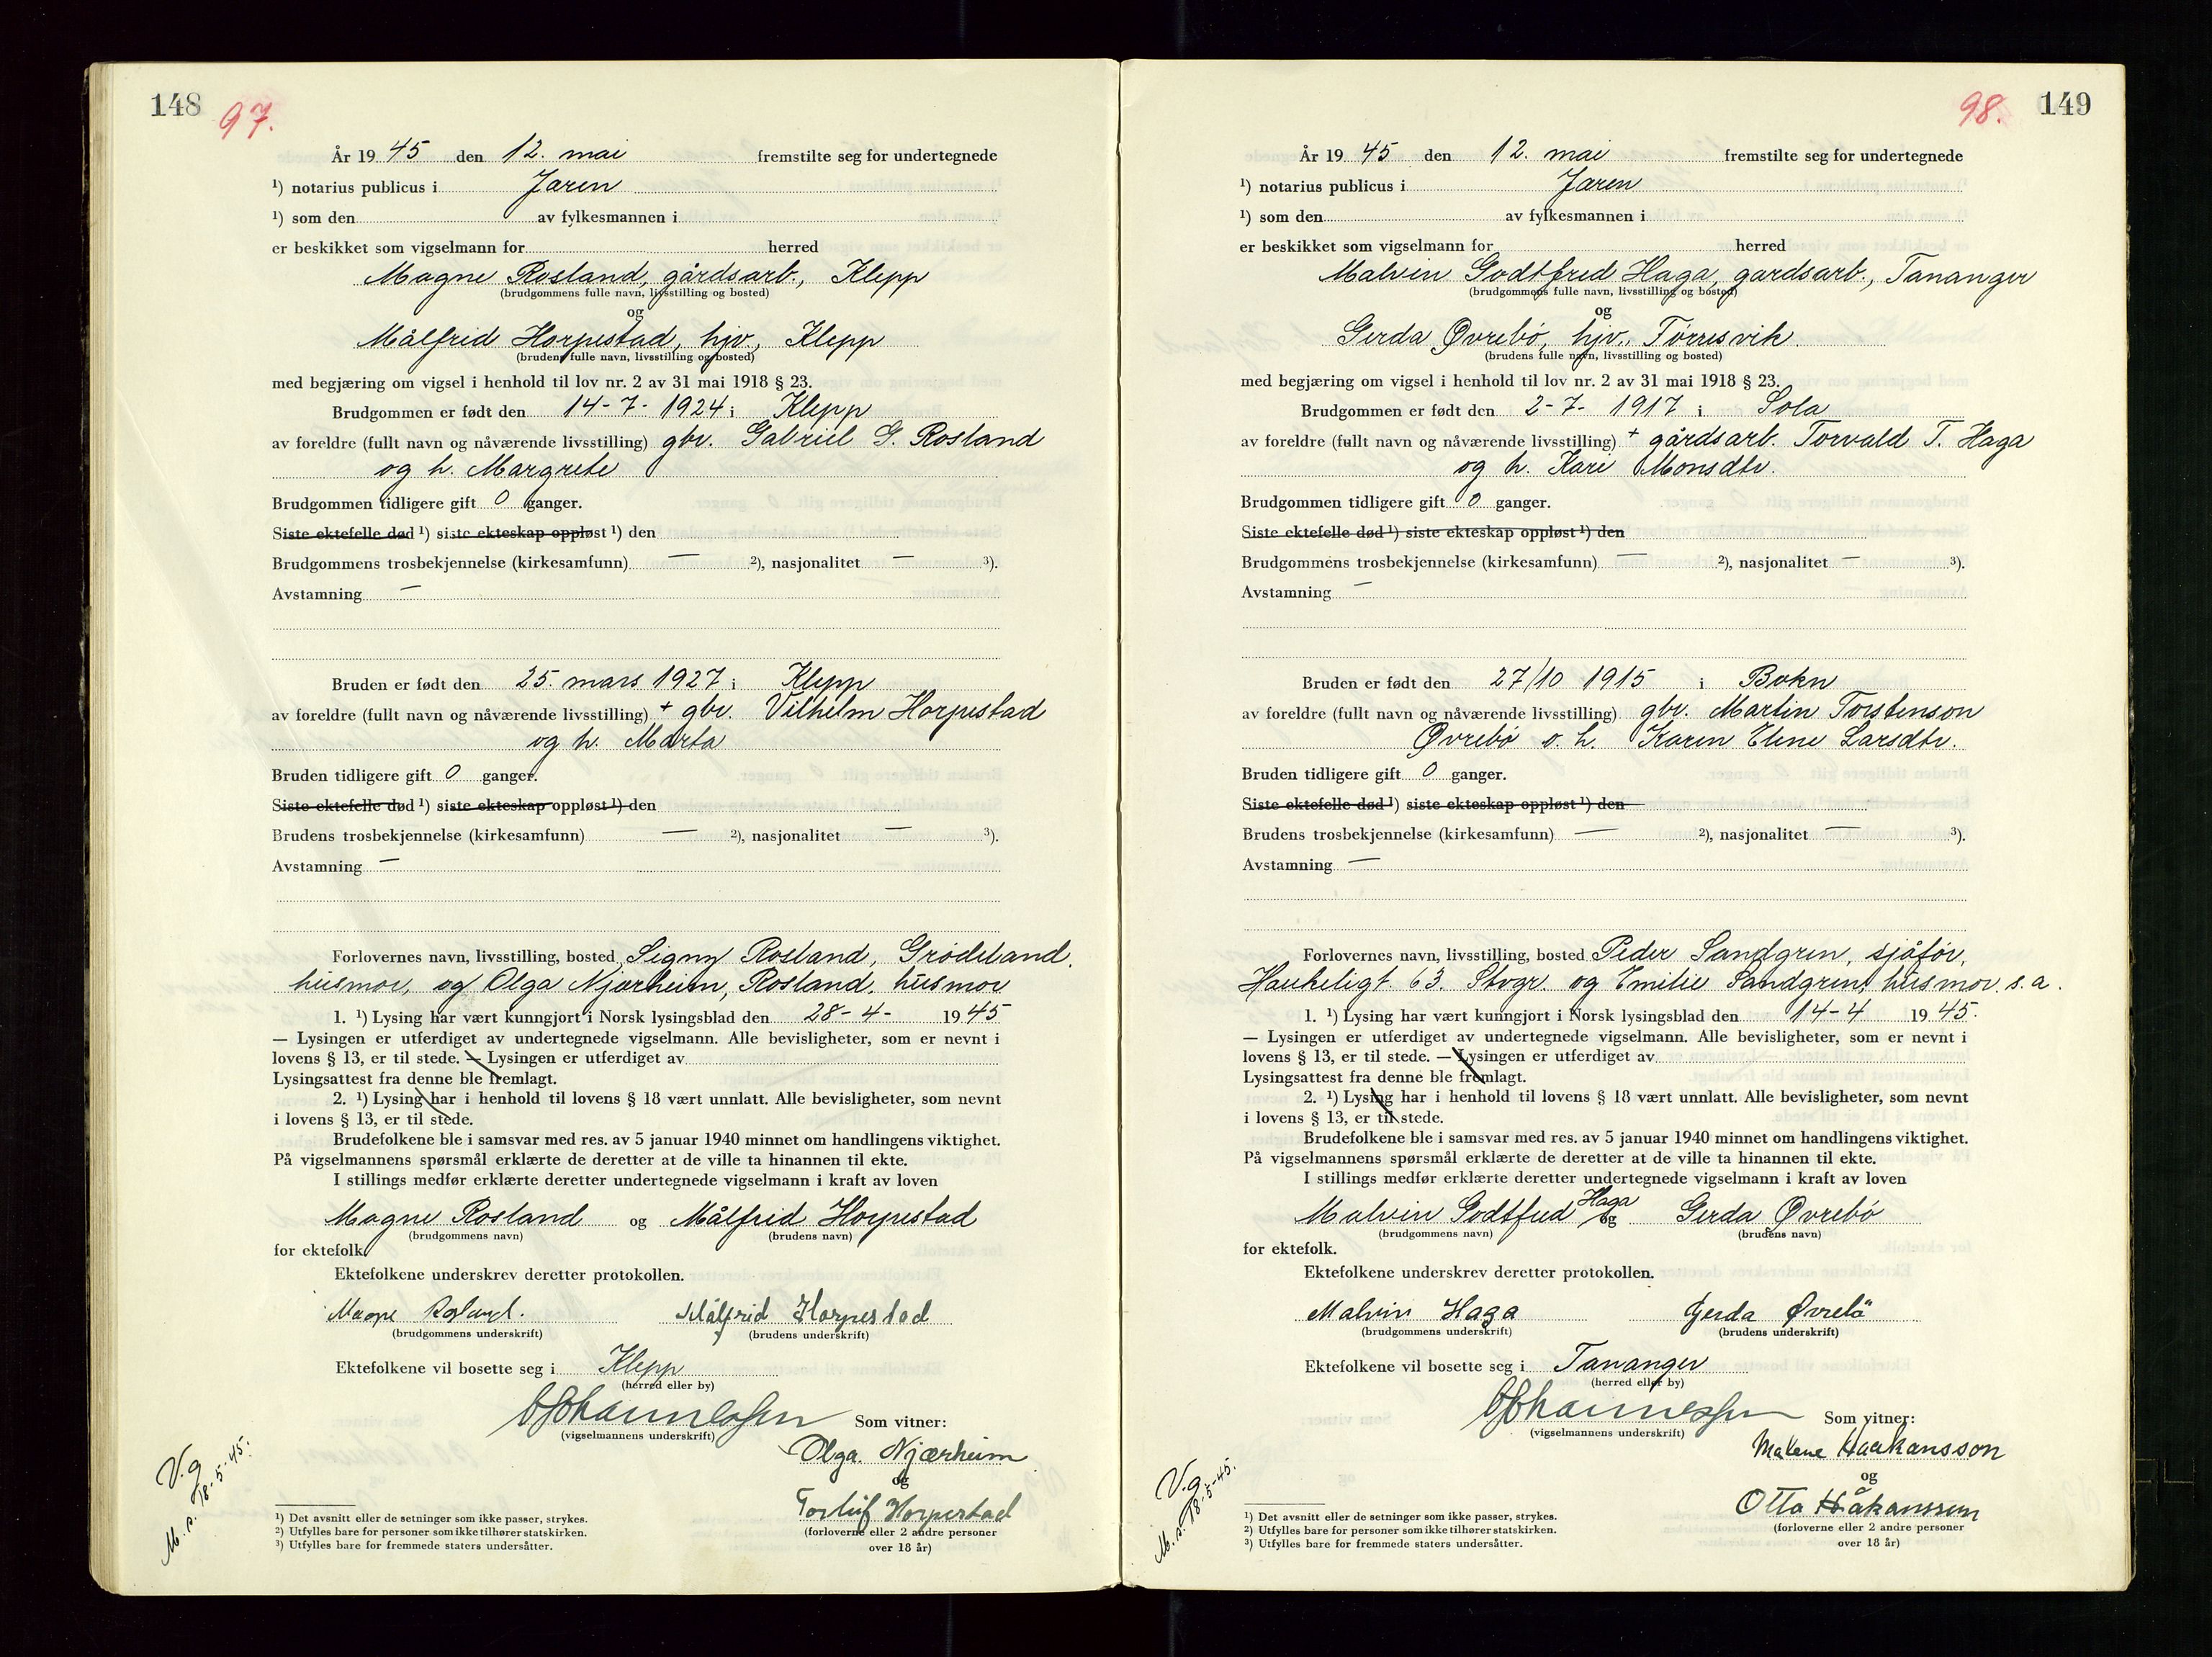 148 97.
År 19 45 den 12. mai fremstilte seg for undertegnede
¹) notarius publicus i Jæren
¹) som den av fylkesmannen i
er beskikket som vigselmann for herred
Magne Rosland, gårdsarb., Klepp
(brudgommens fulle navn, livsstilling og bosted)
og
Målfrid Horpestad, hjv., Klepp
(brudens fulle navn, livsstilling og bosted)
med begjæring om vigsel i henhold til lov nr. 2 av 31 mai 1918 § 23.
Brudgommen er født den 14-7-1924 i Klepp
av foreldre (fullt navn og nåværende livsstilling) gbr. Gabriel G. Rosland
og h. Margrete
Brudgommen tidligere gift 0 ganger.
Siste ektefelle død ¹) siste ekteskap oppløst ¹) den
Brudgommens trosbekjennelse (kirkesamfunn) — ²), nasjonalitet — ³).
Avstamning —
Bruden er født den 25. mars 1927 i Klepp
av foreldre (fullt navn og nåværende livsstilling) + gbr. Vilhelm Horpestad
og h. Marta
Bruden tidligere gift 0 ganger.
Siste ektefelle død ¹) siste ekteskap oppløst ¹) den
Brudens trosbekjennelse (kirkesamfunn) — ²), nasjonalitet — ³).
Avstamning —
Forlovernes navn, livsstilling, bosted Signy Rosland, Grødeland,
husmor, og Olga Njærheim, Rosland, husmor
1. ¹) Lysing har vært kunngjort i Norsk lysingsblad den 28-4- 19 45
— Lysingen er utferdiget av undertegnede vigselmann. Alle bevisligheter, som er nevnt i
lovens § 13, er til stede. — Lysingen er utferdiget av
Lysingsattest fra denne ble fremlagt.
2. ¹) Lysing har i henhold til lovens § 18 vært unnlatt. Alle bevisligheter, som nevnt
i lovens § 13, er til stede.
Brudefolkene ble i samsvar med res. av 5 januar 1940 minnet om handlingens viktighet.
På vigselmannens spørsmål erklærte de deretter at de ville ta hinannen til ekte.
I stillings medfør erklærte deretter undertegnede vigselmann i kraft av loven
Magne Rosland og Målfrid Horpestad
(brudgommens navn) (brudens navn)
for ektefolk.
Ektefolkene underskrev deretter protokollen.
Magne Rosland. Målfrid Horpestad
(brudgommens underskrift) (brudens underskrift)
Ektefolkene vil bosette seg i Klepp
(herred eller by)
Som vitner:
(vigselmannens underskrift)
Olga Njærheim
og
Torleif Horpestad
(forloverne eller 2 andre personer
over 18 år)
V.g.
M.s. 18-5-45.
¹) Det avsnitt eller de setninger som ikke passer, strykes.
²) Utfylles bare for personer som ikke tilhører statskirken.
³) Utfylles bare for fremmede staters undersåtter.
98. 149
År 19 45 den 12. mai fremstilte seg for undertegnede
¹) notarius publicus i Jæren
¹) som den av fylkesmannen i
er beskikket som vigselmann for herred
Malvin Godtfred Haga, gardsarb., Tananger
(brudgommens fulle navn, livsstilling og bosted)
og
Gerda Øvrebø, hjv., Tørresvik.
(brudens fulle navn, livsstilling og bosted)
med begjæring om vigsel i henhold til lov nr. 2 av 31 mai 1918 § 23.
Brudgommen er født den 2-7-1917 i Sola
av foreldre (fullt navn og nåværende livsstilling) + gårdsarb. Torvald T. Haga
og h. Kari Monsdtr.
Brudgommen tidligere gift 0 ganger.
Siste ektefelle død ¹) siste ekteskap oppløst ¹) den
Brudgommens trosbekjennelse (kirkesamfunn) — ²), nasjonalitet — ³).
Avstamning —
Bruden er født den 27/10 1915 i Bokn
av foreldre (fullt navn og nåværende livsstilling) gbr. Martin Torstenson
Øvrebø o. h. Karen Elene Larsdtr.
Bruden tidligere gift 0 ganger.
Siste ektefelle død ¹) siste ekteskap oppløst ¹) den
Brudens trosbekjennelse (kirkesamfunn) — ²), nasjonalitet — ³).
Avstamning —
Forlovernes navn, livsstilling, bosted Peder Sandgren, sjåfør,
Haukeligt. 63. Stvgr. og Emilie Sandgren, husmor. s.a.
1. ¹) Lysing har vært kunngjort i Norsk lysingsblad den 14-4 19 45.
— Lysingen er utferdiget av undertegnede vigselmann. Alle bevisligheter, som er nevnt i
lovens § 13, er til stede. — Lysingen er utferdiget av
Lysingsattest fra denne ble fremlagt.
2. ¹) Lysing har i henhold til lovens § 18 vært unnlatt. Alle bevisligheter, som nevnt
i lovens § 13, er til stede.
Brudefolkene ble i samsvar med res. av 5 januar 1940 minnet om handlingens viktighet.
På vigselmannens spørsmål erklærte de deretter at de ville ta hinannen til ekte.
I stillings medfør erklærte deretter undertegnede vigselmann i kraft av loven
Malvin Godtfred Haga og Gerda Øvrebø
(brudgommens navn) (brudens navn)
for ektefolk.
Ektefolkene underskrev deretter protokollen.
Malvin Haga Gerda Øvrebø
(brudgommens underskrift) (brudens underskrift)
Ektefolkene vil bosette seg i Tananger
(herred eller by)
Som vitner:
(vigselmannens underskrift)
Malene Haakansson
og
Otto Håkansson
(forloverne eller 2 andre personer
over 18 år)
V.g.
M.s. 18-5-45.
¹) Det avsnitt eller de setninger som ikke passer, strykes.
²) Utfylles bare for personer som ikke tilhører statskirken.
³) Utfylles bare for fremmede staters undersåtter.